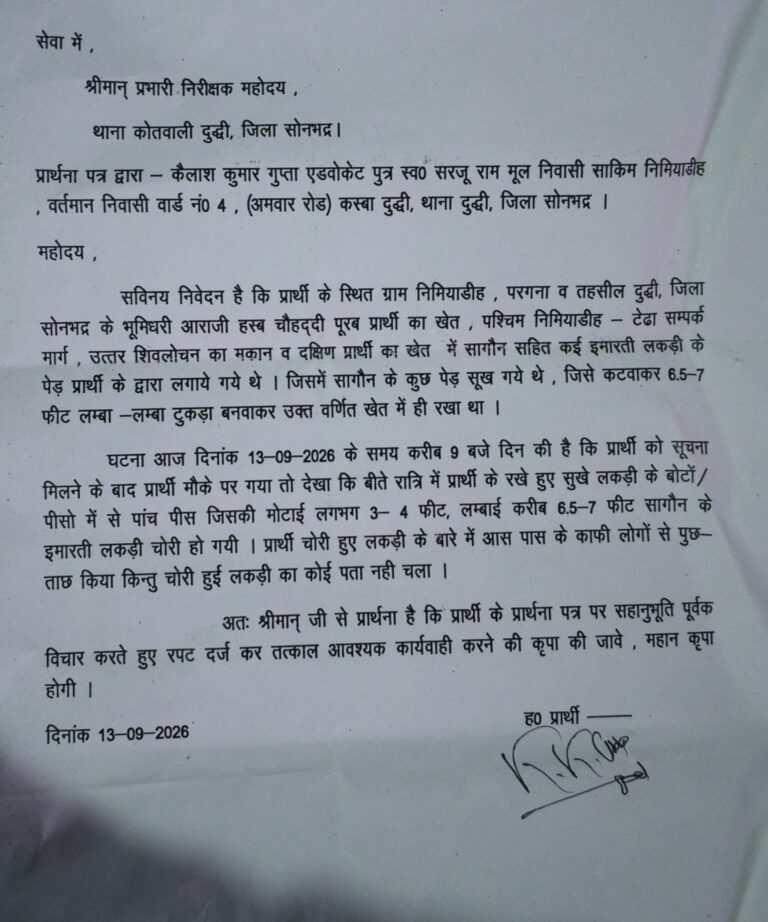 सेवा में ,
श्रीमान् प्रभारी निरीक्षक महोदय ,
थाना कोतवाली दुद्धी, जिला सोनभद्र।
प्रार्थना पत्र द्वारा – कैलाश कुमार गुप्ता एडवोकेट पुत्र स्व0 सरजू राम मूल निवासी साकिम निमियाडीह
, वर्तमान निवासी वार्ड नं0 4 , (अमवार रोड) कस्बा दुद्धी, थाना दुद्धी, जिला सोनभद्र ।
महोदय ,
सविनय निवेदन है कि प्रार्थी के स्थित ग्राम निमियाडीह , परगना व तहसील दुद्धी, जिला
सोनभद्र के भूमिधरी आराजी हस्ब चौहद्दी पूरब प्रार्थी का खेत , पश्चिम निमियाडीह – टेढा सम्पर्क
मार्ग , उत्तर शिवलोचन का मकान व दक्षिण प्रार्थी का खेत में सागौन सहित कई इमारती लकड़ी के
पेड़ प्रार्थी के द्वारा लगाये गये थे । जिसमें सागौन के कुछ पेड़ सूख गये थे , जिसे कटवाकर 6.5–7
फीट लम्बा –लम्बा टुकड़ा बनवाकर उक्त वर्णित खेत में ही रखा था ।
घटना आज दिनांक 13–09–2026 के समय करीब 9 बजे दिन की है कि प्रार्थी को सूचना
मिलने के बाद प्रार्थी मौके पर गया तो देखा कि बीते रात्रि में प्रार्थी के रखे हुए सुखे लकड़ी के बोटों/
पीसो में से पांच पीस जिसकी मोटाई लगभग 3– 4 फीट, लम्बाई करीब 6.5–7 फीट सागौन के
इमारती लकड़ी चोरी हो गयी । प्रार्थी चोरी हुए लकड़ी के बारे में आस पास के काफी लोगों से पुछ–
ताछ किया किन्तु चोरी हुई लकड़ी का कोई पता नही चला ।
अतः श्रीमान् जी से प्रार्थना है कि प्रार्थी के प्रार्थना पत्र पर सहानुभूति पूर्वक
विचार करते हुए रपट दर्ज कर तत्काल आवश्यक कार्यवाही करने की कृपा की जावे , महान कृपा
होगी ।
ह0 प्रार्थी ———
दिनांक 13–09–2026
K.K.